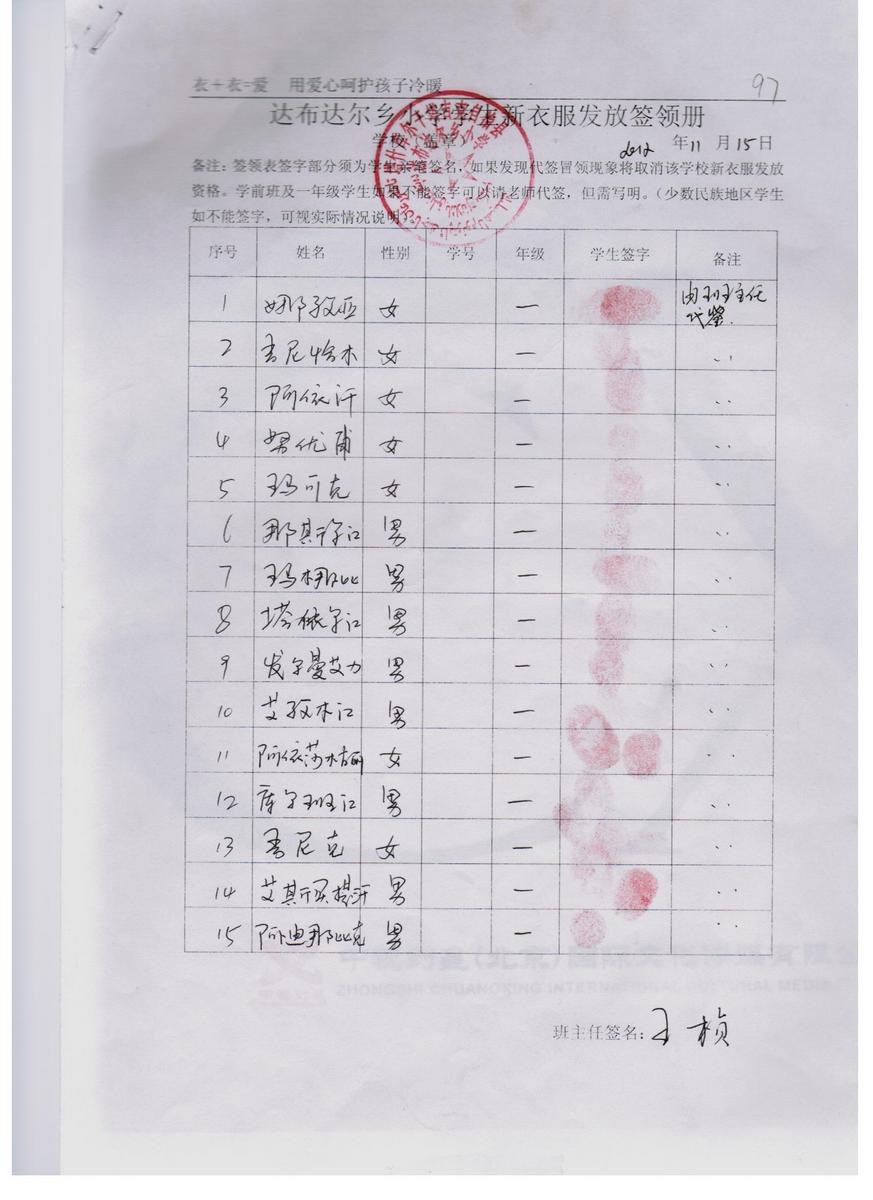 衣+衣=爱 用爱心呵护孩子冷暖
97
达布达尔乡小学学生新衣服发放签领册
学校（盖章） 2012 年 11 月 15 日
备注：签领表签字部分须为学生亲笔签名，如果发现代签冒领现象将取消该学校新衣服发放
资格。学前班及一年级学生如果不能签字可以请老师代签，但需写明。（少数民族地区学生
如不能签字，可视实际情况说明）。
序号 姓名 性别 学号 年级 学生签字 备注
1 娜孜亚 女 一 由班主任
代签.
2 女 一 ..
3 阿依汗 女 一 ..
4 努优甫 女 一 ..
5 玛可克 女 一 ..
6 那其尔江 男 一 ..
7 男 一 ..
8 塔依尔江 男 一 ..
9 发尔曼艾力 男 一 ..
10 艾孜木江 男 一 ..
11 阿依莎木古丽 女 一 ..
12 库尔班江 男 一 ..
13 女 一 ..
14 男 一 ..
15 阿迪那比克 男 一 ..
ZHONGSHI CHUANGXING INTERNATIONAL CULTURAL MEDIA
班主任签名：王桢